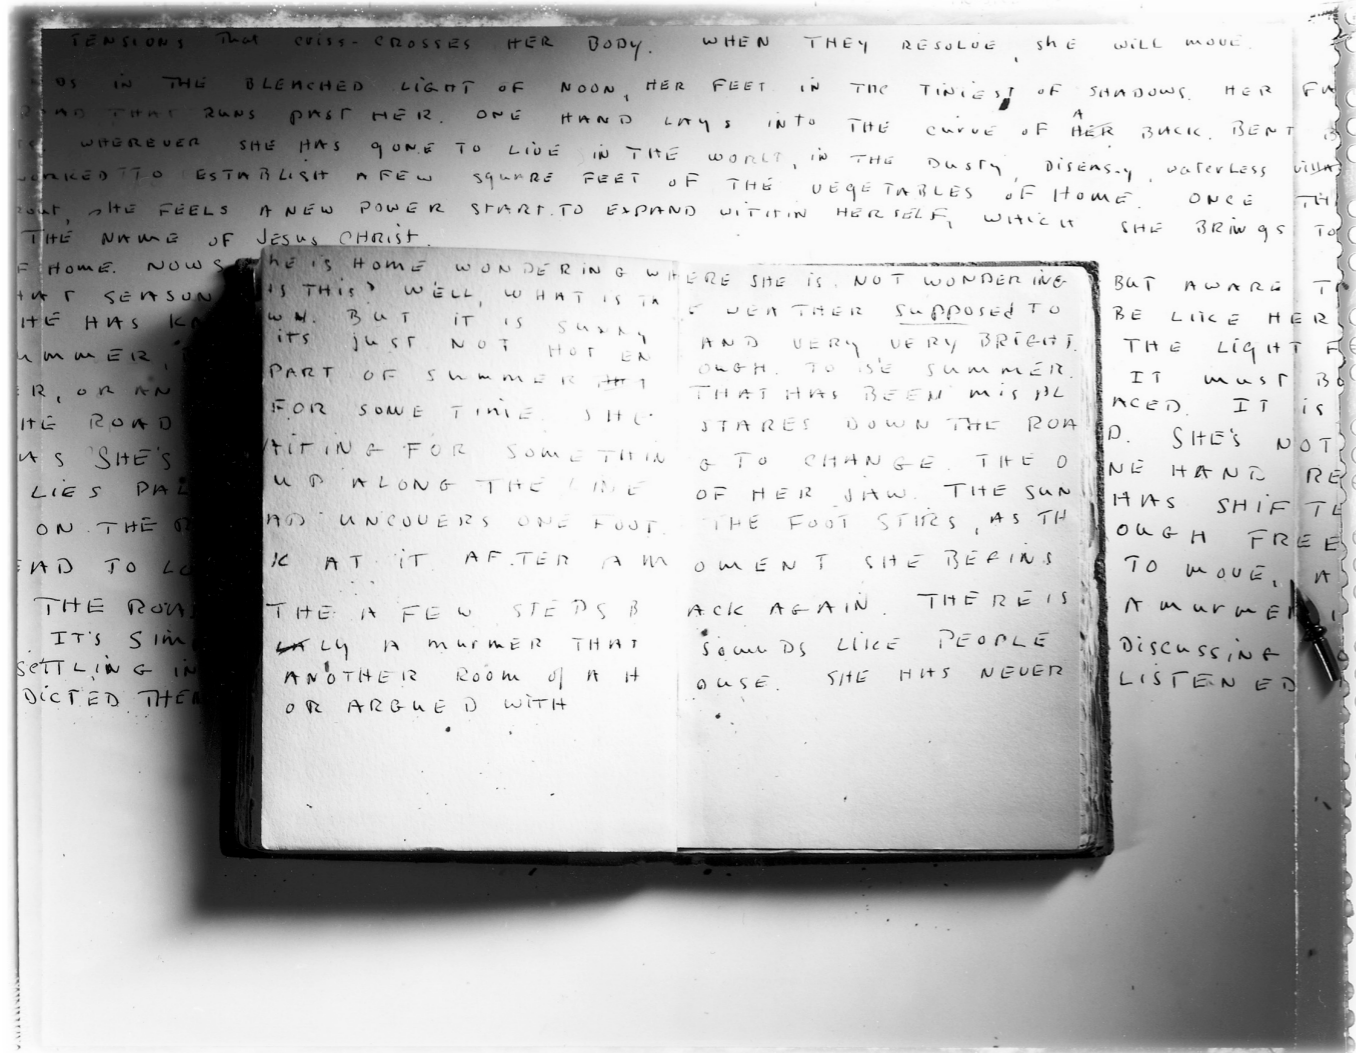 TENSIONS THAT CRISS-CROSSES HER BODY. WHEN THEY RESOLVE, SHE WILL MOVE.
DS IN THE BLEACHED LIGHT OF NOON, HER FEET IN THE TINIEST OF SHADOWS. HER FA
ROAD THAT RUNS PAST HER. ONE HAND LAYS INTO THE CURVE OF HER BACK. BENT B
A
WHEREVER SHE HAS GONE TO LIVE IN THE WORLD, IN THE DUSTY, DISEASY, WATERLESS VILLA
WORKED TO ESTABLISH A FEW SQUARE FEET OF THE VEGETABLES OF HOME. ONCE TH
ROUT, SHE FEELS A NEW POWER START TO EXPAND WITHIN HERSELF, WHICH SHE BRINGS TO
THE NAME OF JESUS CHRIST.
F HOME. NOW SHE IS HOME WONDERING WHERE SHE IS. NOT WONDERING BUT AWARE TH
HAT SEASON IS THIS? WELL, WHAT IS THE WEATHER SUPPOSED TO BE LIKE HER
HE HAS KN WN. BUT IT IS SUNNY AND VERY VERY BRIGHT. THE LIGHT F
UMMER, ITS JUST NOT HOT ENOUGH. TO BE SUMMER. IT MUST BE
ER, OR AN PART OF SUMMER THAT HAS BEEN MISPLACED. IT IS
HE ROAD FOR SOME TIME. SHE STARES DOWN THE ROAD. SHE'S NOT
AS SHE'S AITING FOR SOMETHING TO CHANGE. THE ONE HAND RE
LIES PAL UP ALONG THE LINE OF HER JAW. THE SUN HAS SHIFTE
ON THE R AD UNCOVERS ONE FOOT. THE FOOT STIRS, AS THOUGH FREE
EAD TO LOOK AT IT. AFTER A MOMENT SHE BEGINS TO MOVE, A
THE ROAD THE A FEW STEPS BACK AGAIN. THERE IS A MURMER
IT'S SIM LY A MURMER THAT SOUNDS LIKE PEOPLE DISCUSSING
SETTLING IN ANOTHER ROOM OF A HOUSE. SHE HAS NEVER LISTENED
DICTED THEM OR ARGUED WITH